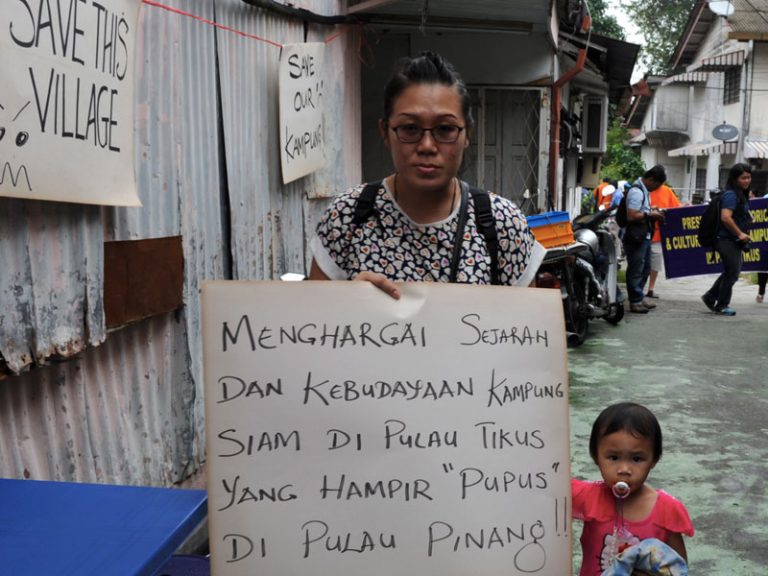 SAVE THIS
VILLAGE
SAVE
OUR
KAMPUNG!
MENGHARGAI SEJARAH
DAN KEBUDAYAAN KAMPUNG
SIAM DI PULAU TIKUS
YANG HAMPIR "PUPUS"
DI PULAU PINANG!!
& CULTUR
TIKUS